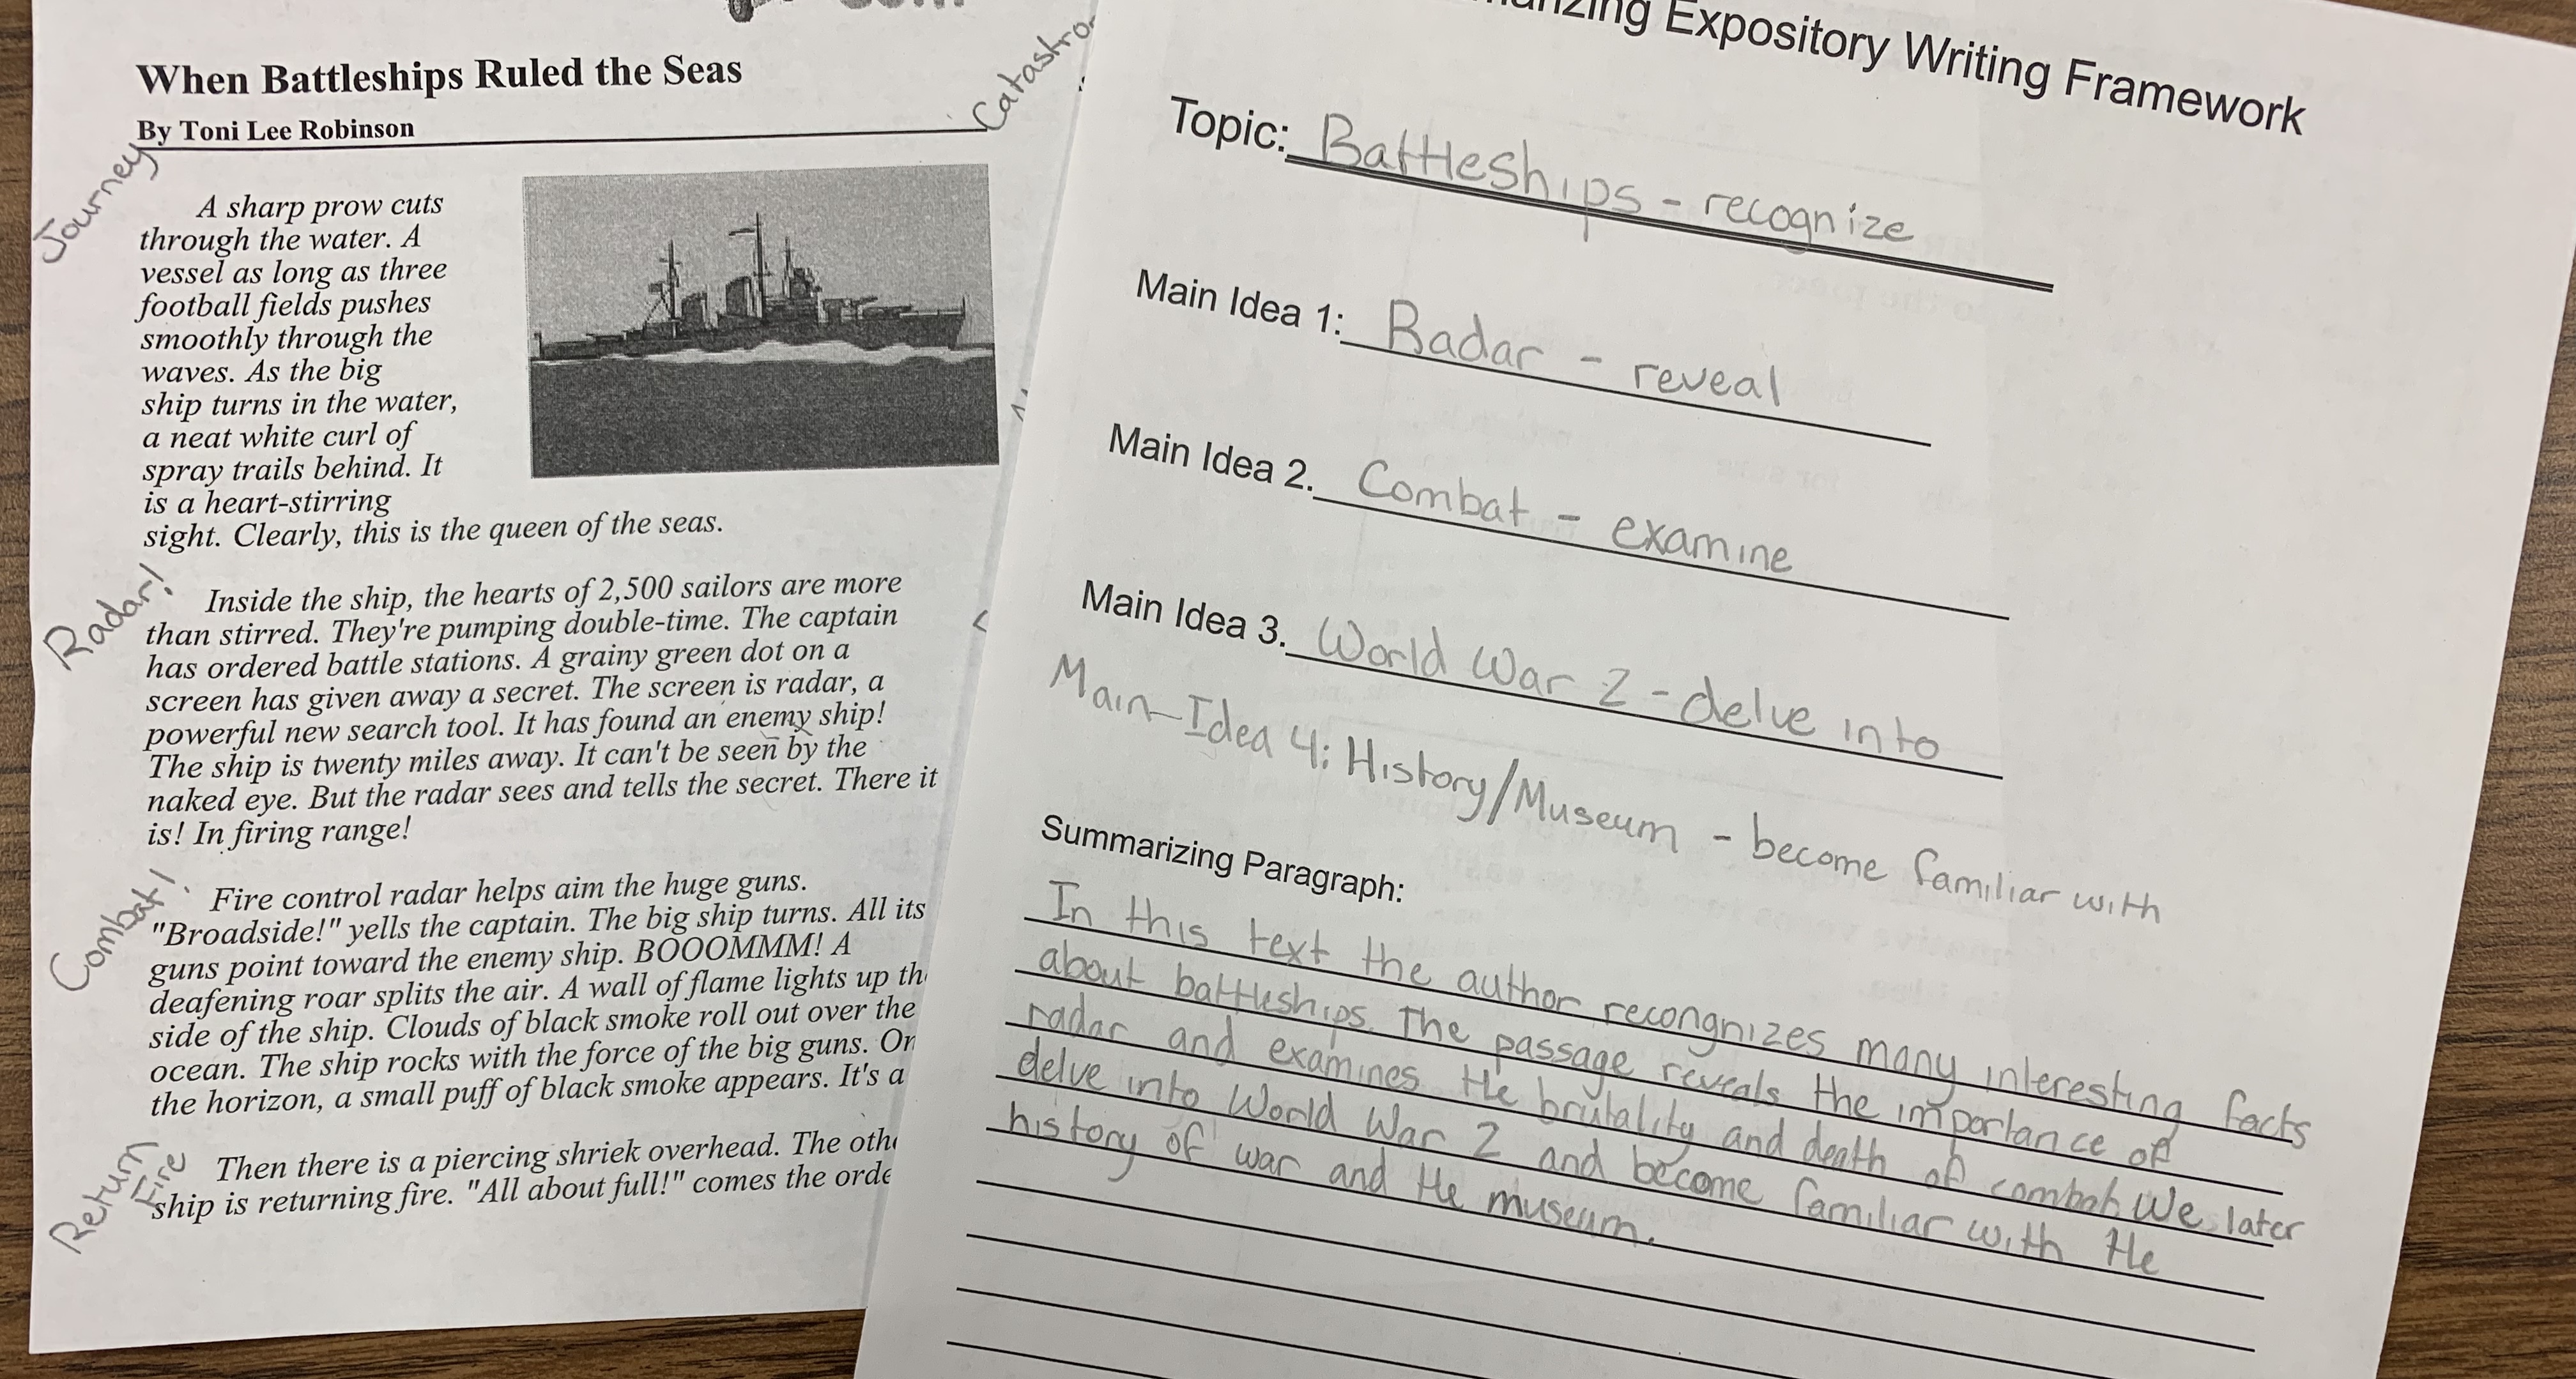 When Battleships Ruled the Seas
By Toni Lee Robinson
Journey
A sharp prow cuts
through the water. A
vessel as long as three
football fields pushes
smoothly through the
waves. As the big
ship turns in the water,
a neat white curl of
spray trails behind. It
is a heart-stirring
sight. Clearly, this is the queen of the seas.
Radar!
Inside the ship, the hearts of 2,500 sailors are more
than stirred. They're pumping double-time. The captain
has ordered battle stations. A grainy green dot on a
screen has given away a secret. The screen is radar, a
powerful new search tool. It has found an enemy ship!
The ship is twenty miles away. It can't be seen by the
naked eye. But the radar sees and tells the secret. There it
is! In firing range!
Combat!
Fire control radar helps aim the huge guns.
"Broadside!" yells the captain. The big ship turns. All its
guns point toward the enemy ship. BOOOMMM! A
deafening roar splits the air. A wall of flame lights up th
side of the ship. Clouds of black smoke roll out over the
ocean. The ship rocks with the force of the big guns. On
the horizon, a small puff of black smoke appears. It's a
Return
Fire
Then there is a piercing shriek overhead. The oth
ship is returning fire. "All about full!" comes the orde
Catastro
Expository Writing Framework
Topic: Battleships - recognize
Main Idea 1: Radar - reveal
Main Idea 2. Combat - examine
Main Idea 3. World War 2 - delve into
Main Idea 4: History/Museum - become familiar with
Summarizing Paragraph:
In this text the author recongnizes many interesting facts
about battleships. The passage reveals the importance of
radar and examines the brutality and death of combat. We later
delve into World War 2 and become familiar with the
history of war and the museum.